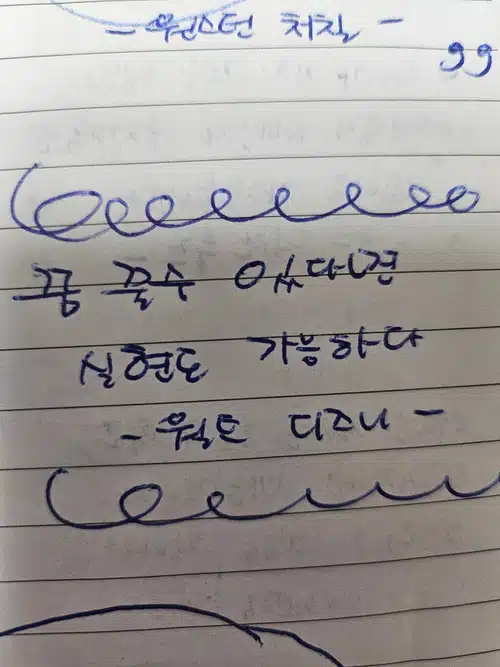 - 윈스턴 처칠 -
99
꿈 꿀수 있다면
실현도 가능하다
- 월트 디즈니 -